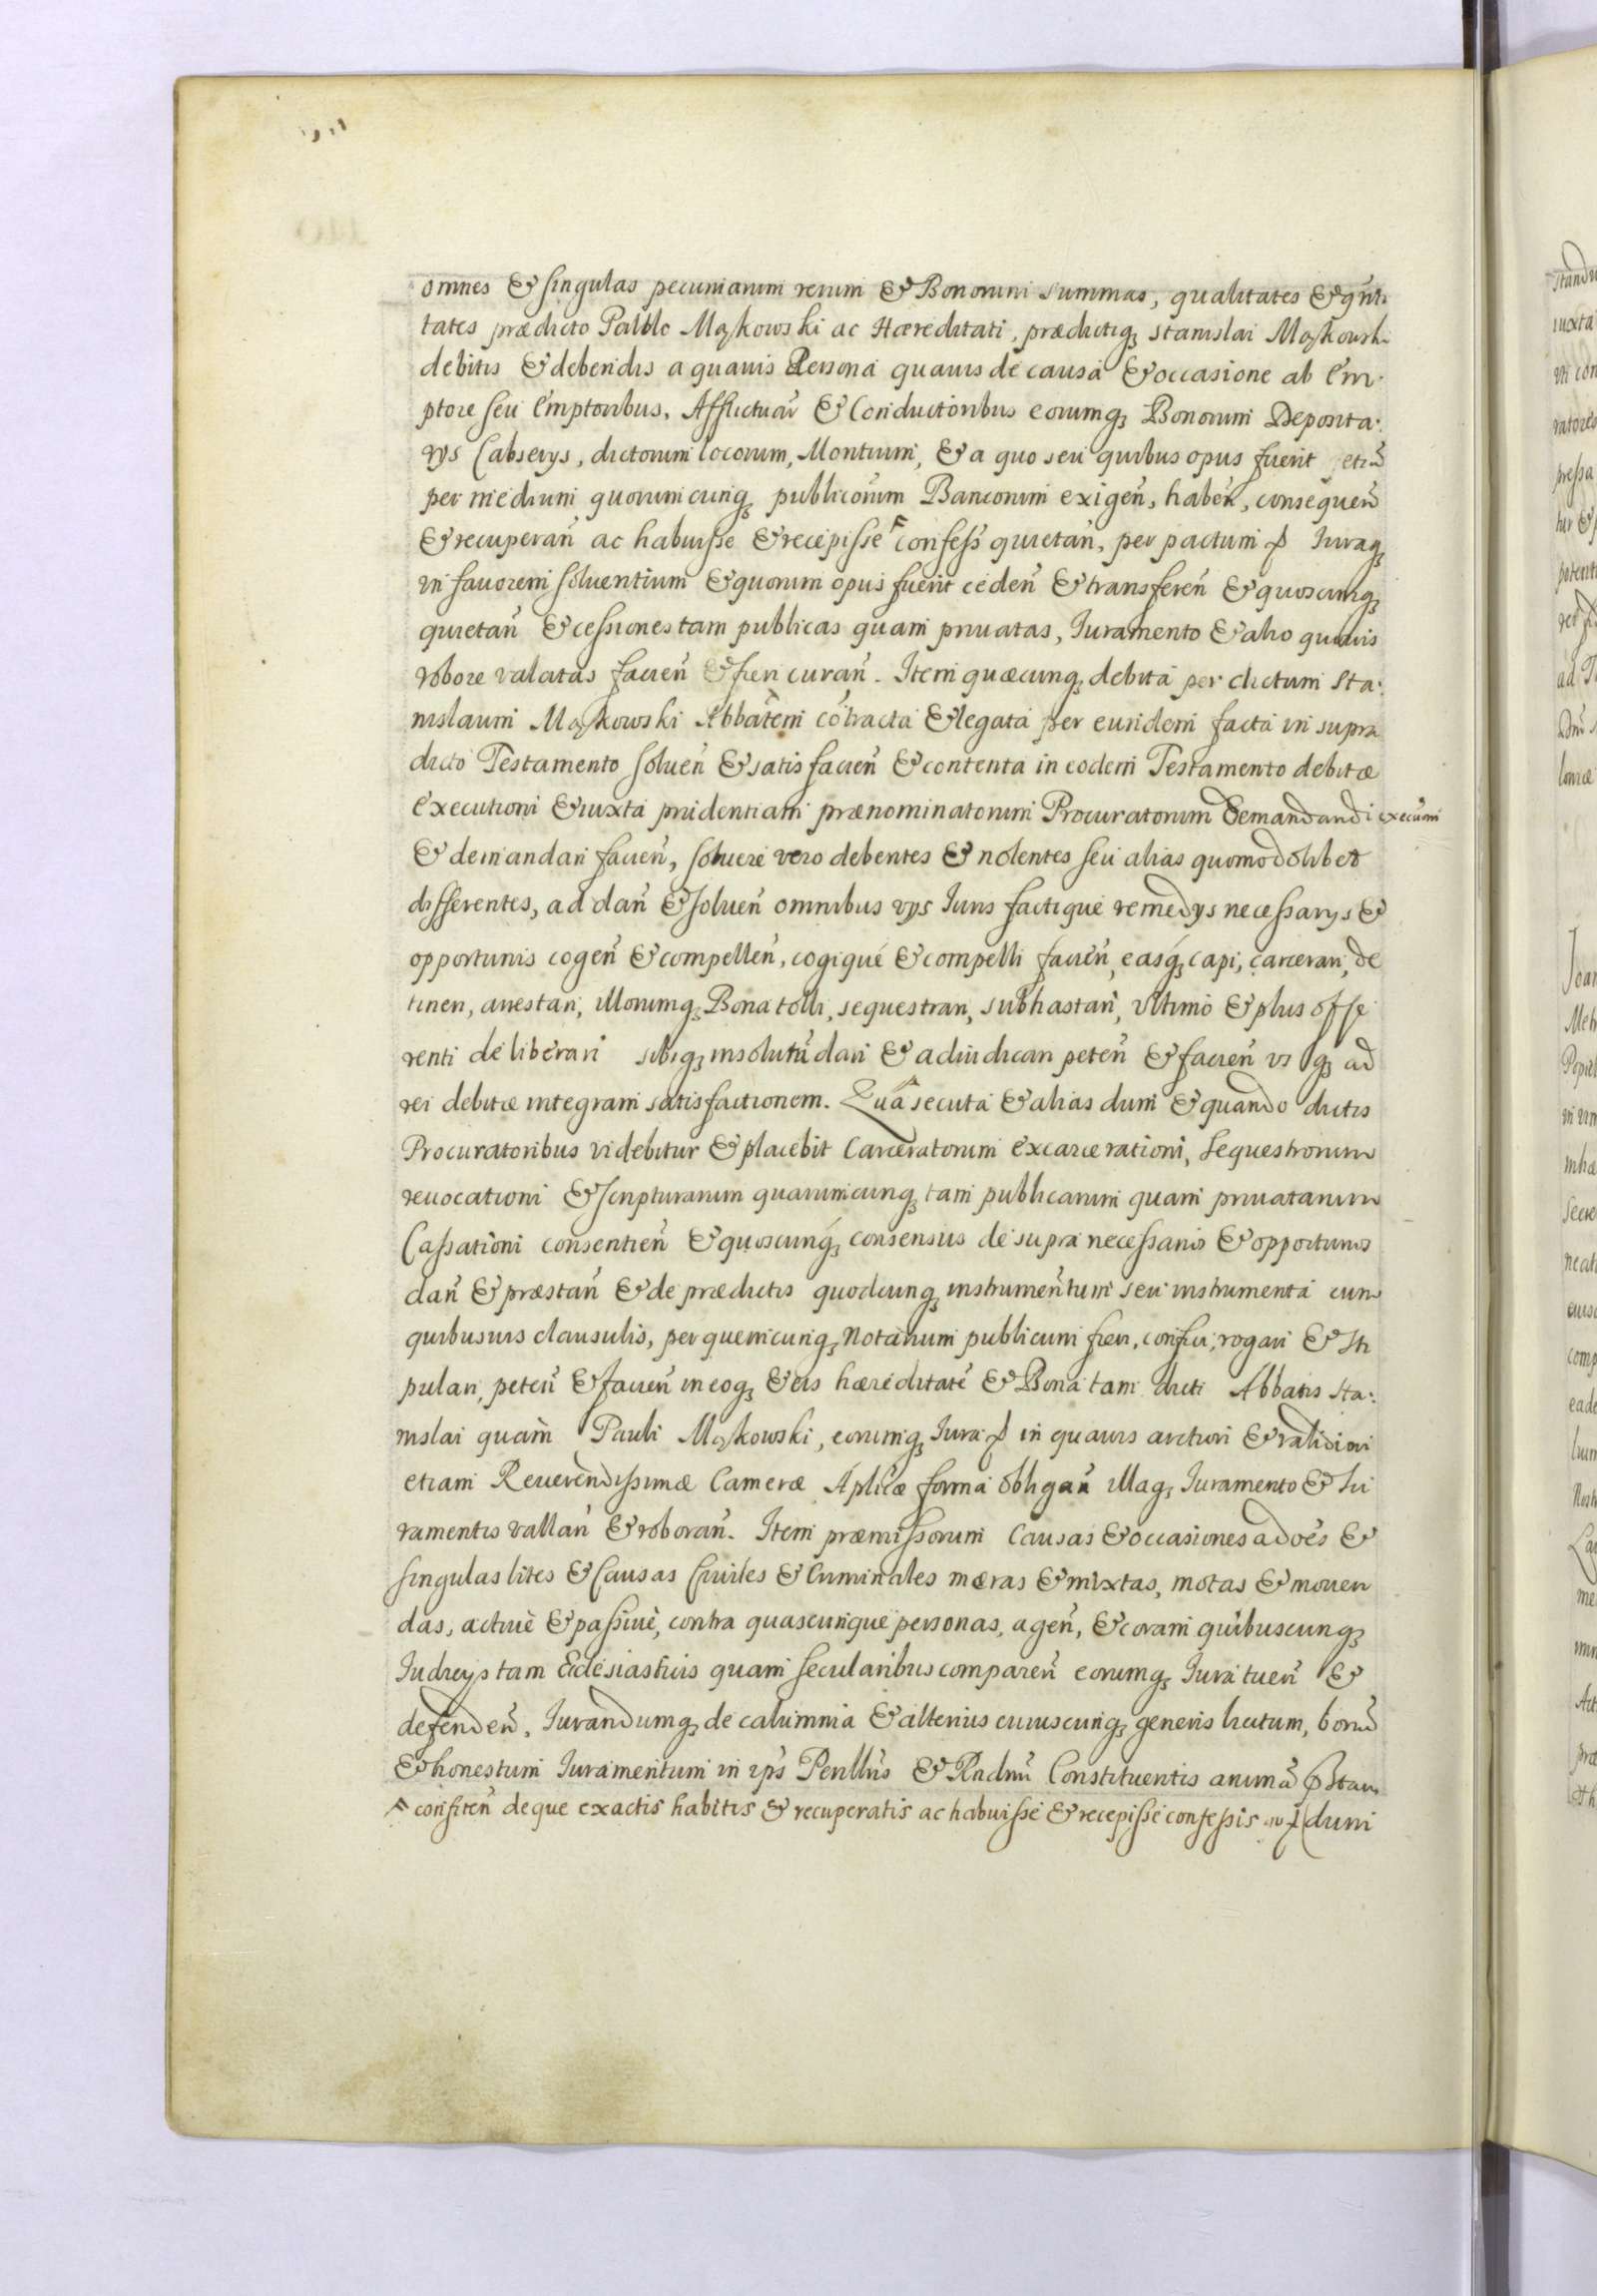 omnes & singulas pecuniarum rerum & Bonorum summas, qualitates & qnti
tates prædicto Pablo Mazkowski ac Hæreditati, prædictiq; Stanislai Mazkowski
debitis & debendis a quauis Persona quauis de causa & occasione ab Em-
ptore seu Emptoribus, Afflictuar̃ & Conductoribus eorumq; Bonorum Deposita-
rys Cabserys, dictorum locorum, Montium, & a quo seu quibus opus fuerit etiã
per medium quorumcunq; publicorum Bancorum exigeñ, habeñ, consequeñ
& recuperañ ac habuisse & recepisse confess̃ quietañ, per pactum p Iuraq;
in fauorem soluentium & quorum opus fuerit cedeñ & transfereñ & quoscunq;
quietañ & cessiones tam publicas quam priuatas, Iuramento & alio quouis
robore valatas facieñ & fieri curañ. Item quæcunq; debita per dictum Sta-
nislaum Mazkowski Abbatem cõtracta & legata per eundem facta in supra
dicto Testamento solueñ & satisfacieñ & contenta in eodem Testamento debitæ
executioni & iuxta prudentiam prænominatorum Procuratorum Demandandi execuõni
& demandari facieñ, soluere vero debentes & nolentes seu alias quomodolibet
differentes, ad dañ & solueñ omnibus vys Iuris factique remedys necessarys &
opportunis cogeñ & compelleñ, cogique & compelli facieñ, easq; capi, carcerari, de
tineri, arrestari, illorumq; Bona tolli, sequestrari, subhastari, vltimo & plus offe
renti deliberari sibiq; insolutũ dari & adiudicari peteñ & facieñ vsq; ad
rei debitæ integram satisfactionem. Quâ secuta & alias dum & quando dictis
Procuratoribus videbitur & placebit Carceratorum excarcerationi, Sequestrorum
reuocationi & scripturarum quarumcunq; tam publicarum quam priuatarum
Cassationi consentieñ & quoscunq; consensus de supra necessarios & opportunos
dañ & præstañ & de prædictis quodcunq; instrumentum seu instrumenta cum
quibusuis clausulis, per quemcunq; Notarium publicum fieri, confici, rogari & sti
pulari, peteñ & facieñ ineoq; & eis hæreditatẽ & Bona tam dicti Abbatis Sta-
nislai quàm Pauli Mazkowski, eorumq; Iura p in quauis arctiori & validiori
etiam Reuerendissimæ Cameræ Aplicæ forma obligañ illaq; Iuramento & Iu
ramentis vallañ & roborañ. Item præmissorum causas & occasiones ad oẽs &
singulas lites & Causas Ciuiles & Criminales meras & mixtas, motas & mouen
das, actiuè & passiuè, contra quascunque personas, ageñ, & coram quibuscunq;
Iudicys tam Ecclesiasticis quam secularibus compareñ eorumq; Iura tueñ &
defendeñ, Iurandumq; de calumnia & alterius cuiuscunq; generis licitum, bonũ
& honestum Iuramentum in ips̃ Perillũs & Rndmi Constituentis animã pstan
confiteñ deque exactis habitis & recuperatis ac habuisse & recepisse confessis
dum